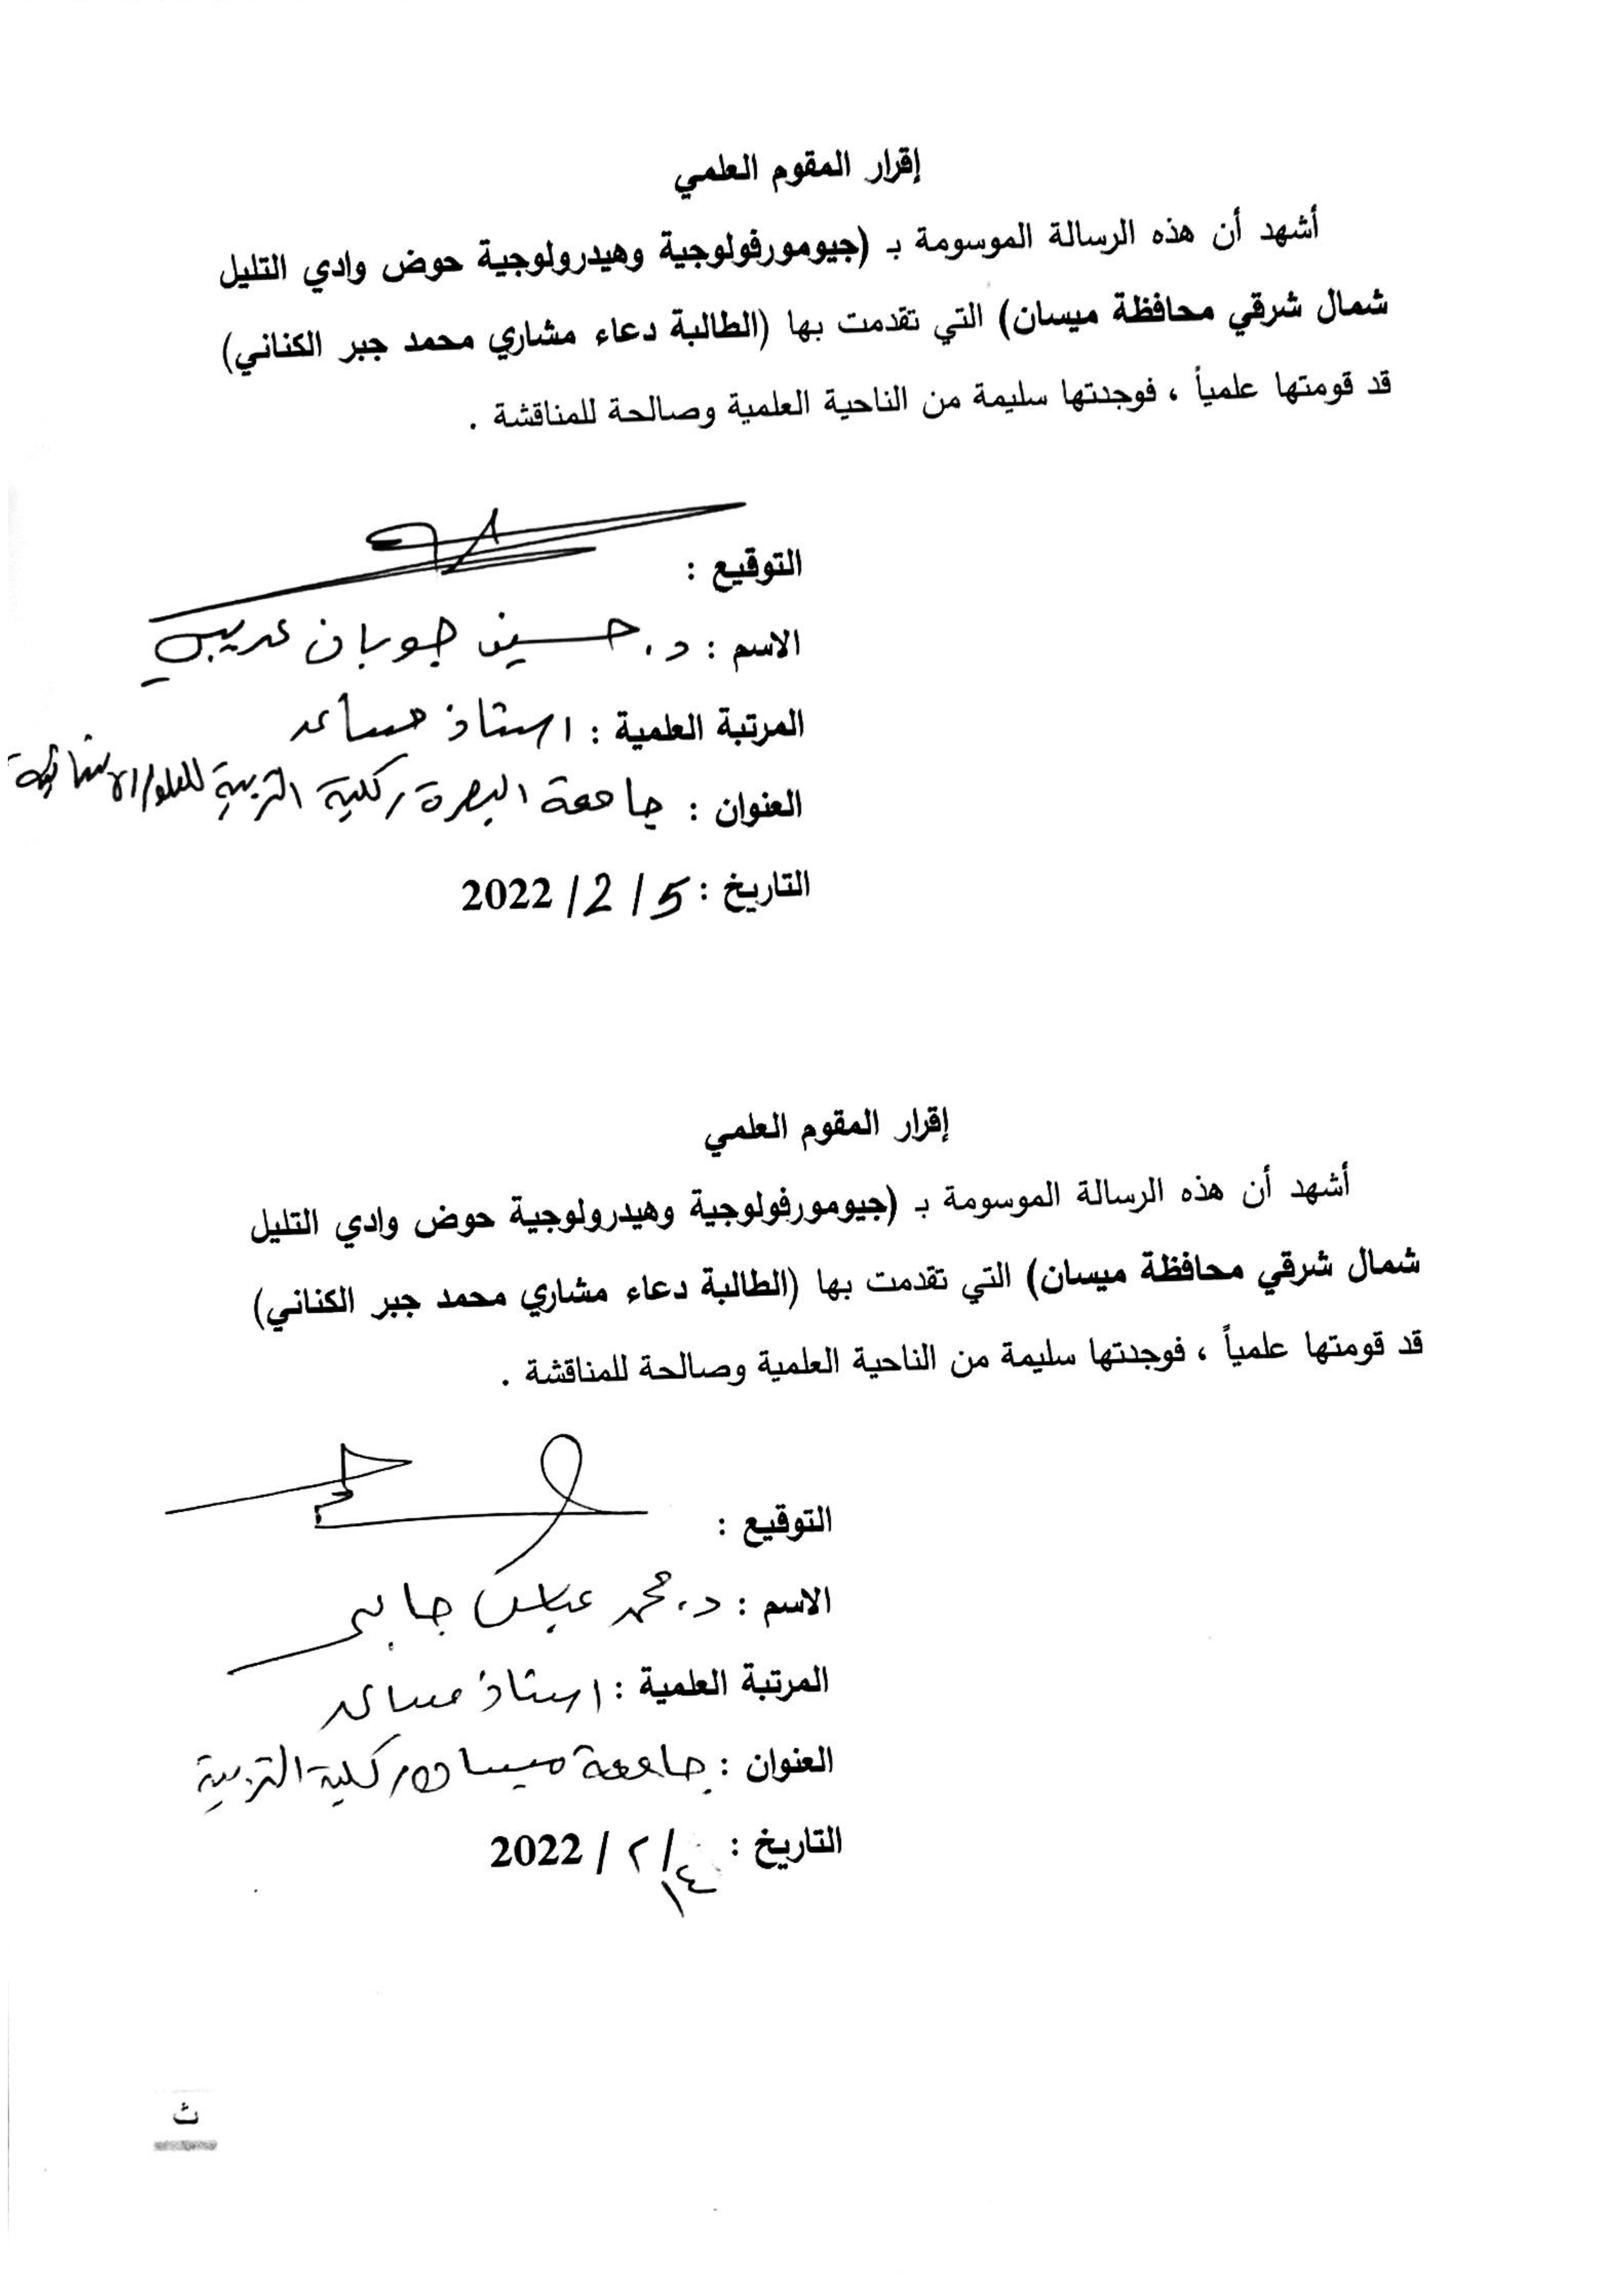 إقرار المقوم العلمي
أشهد أن هذه الرسالة الموسومة بـ (جيومورفولوجية وهيدرولوجية حوض وادي التليل
شمال شرقي محافظة ميسان) التي تقدمت بها (الطالبة دعاء مشاري محمد جبر الكناني)
قد قومتها علمياً ، فوجدتها سليمة من الناحية العلمية وصالحة للمناقشة .
التوقيع :
الاسم : د. حسين جوبان عريبي
المرتبة العلمية : استاذ مساعد
العنوان : جامعة البصرة / كلية التربية للعلوم الانسانية
التاريخ : 5 / 2 / 2022
إقرار المقوم العلمي
أشهد أن هذه الرسالة الموسومة بـ (جيومورفولوجية وهيدرولوجية حوض وادي التليل
شمال شرقي محافظة ميسان) التي تقدمت بها (الطالبة دعاء مشاري محمد جبر الكناني)
قد قومتها علمياً ، فوجدتها سليمة من الناحية العلمية وصالحة للمناقشة .
التوقيع :
الاسم : د. محمد عباس جابر
المرتبة العلمية : استاذ مساعد
العنوان : جامعة ميسان / كلية التربية
التاريخ : ١٤ / ٢ / 2022
ث